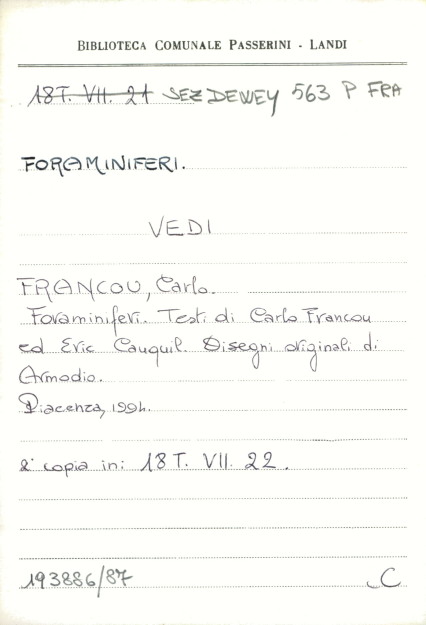 BIBLIOTECA COMUNALE PASSERINI - LANDI
18T. VII. 21 SEZ DEWEY 563 P FRA
FORAMINIFERI.
VEDI
FRANCOU, Carlo.
Foraminiferi. Testi di Carlo Francou
ed Eric Cauquil. Disegni originali di
Armodio.
Piacenza, 1994.
2ª copia in: 18 T. VII. 22.
193886/87 C